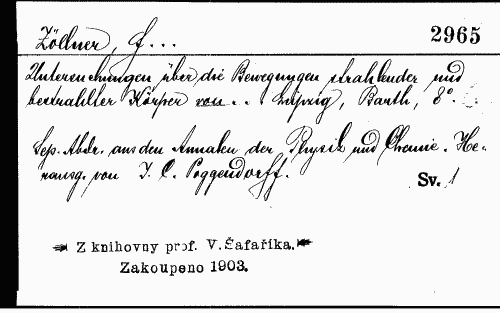 Zöllner, F...
2965
Untersuchungen über die Bewegungen strahlender und
bestrahlter Körper von .. Leipzig, Barth, 8°.
Sep. Abdr. aus den Annalen der Physik und Chemie. He-
rausg. von J. C. Poggendorff.
Sv. 1
Z knihovny prof. V. Šafaříka.
Zakoupeno 1903.